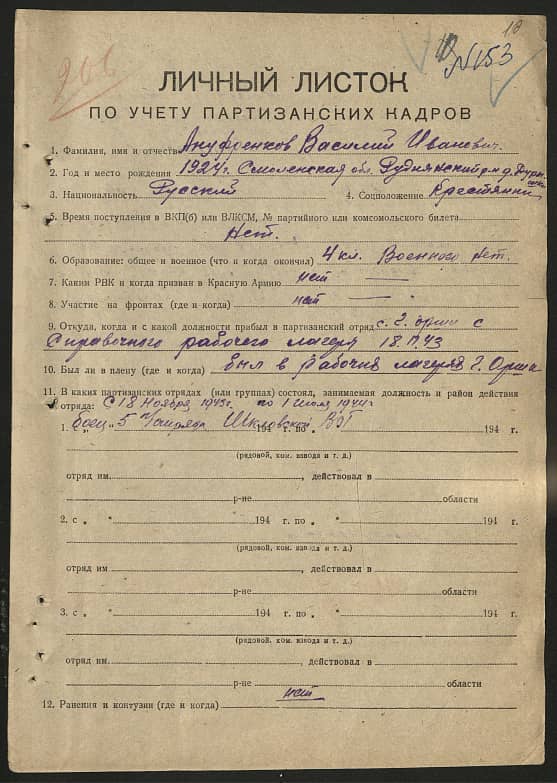 10
206
№153
ЛИЧНЫЙ ЛИСТОК
ПО УЧЕТУ ПАРТИЗАНСКИХ КАДРОВ
1. Фамилия, имя и отчество Ануфренков Василий Иванович.
2. Год и место рождения 1924г. Смоленская обл. Руднянский р-н д.
3. Национальность Русский 4. Соцположение Крестянин
5. Время поступления в ВКП(б) или ВЛКСМ, № партийного или комсомольского билета
Нет.
6. Образование: общее и военное (что и когда окончил) 4 кл. Военного Нет.
7. Каким РВК и когда призван в Красную Армию нет —
8. Участие на фронтах (где и когда) нет —
9. Откуда, когда и с какой должности прибыл в партизанский отряд с г. Орши с
Справочного рабочего лагеря 18.11.43
10. Был ли в плену (где и когда) Был в Рабочия лагерях г. Орша
11. В каких партизанских отрядах (или группах) состоял, занимаемая должность и район действия
отряда: С 18 Ноября 1943г. по 1 Июля 1944г
1. боец 5 Шкловской ВОГ 194 г. по 194 г.
(рядовой, ком. взвода и т. д.)
отряд им. , действовал в
р-не области
2. с „ “ 194 г. по „ “ 194 г.
(рядовой, ком. взвода и т. д.)
отряд им. , действовал в
р-не области
3. с „ “ 194 г. по „ “ 194 г.
(рядовой, ком. взвода и т. д.)
отряд им. , действовал в
р-не области
12. Ранения и контузии (где и когда) нет